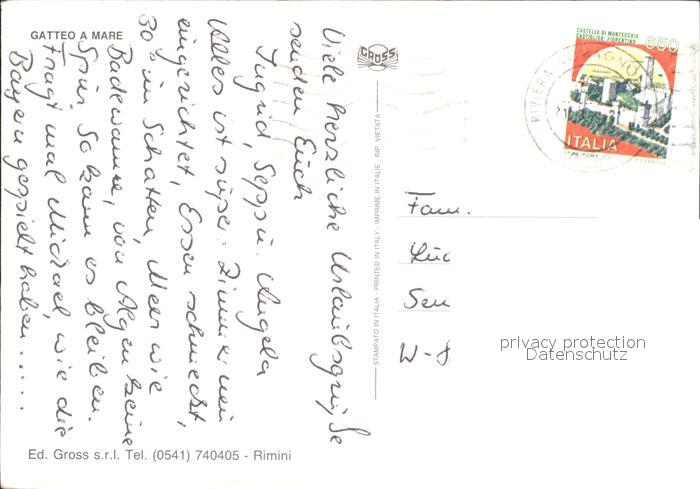 GATTEO A MARE
GROSS
Viele herzliche Urlaubsgrüße
senden Euch
Ingrid, Sepp u. Angela
Alles ist super: Zimmer neu
eingerichtet, Essen schmeckt,
30° im Schatten, Meer wie
Badewanne, von Algen keine
Spur. So kann es bleiben.
Fragt mal Michael, wie die
Bayern gespielt haben.....
STAMPATO IN ITALIA - PRINTED IN ITALY - IMPRIME IN ITALIE - RIP. VIETATA
CASTELLO DI MONTECCHIO
CASTIGLION FIORENTINO
650
ITALIA
RIVIERA
Fam.
W-8
privacy protection
Datenschutz
Ed. Gross s.r.l. Tel. (0541) 740405 - Rimini